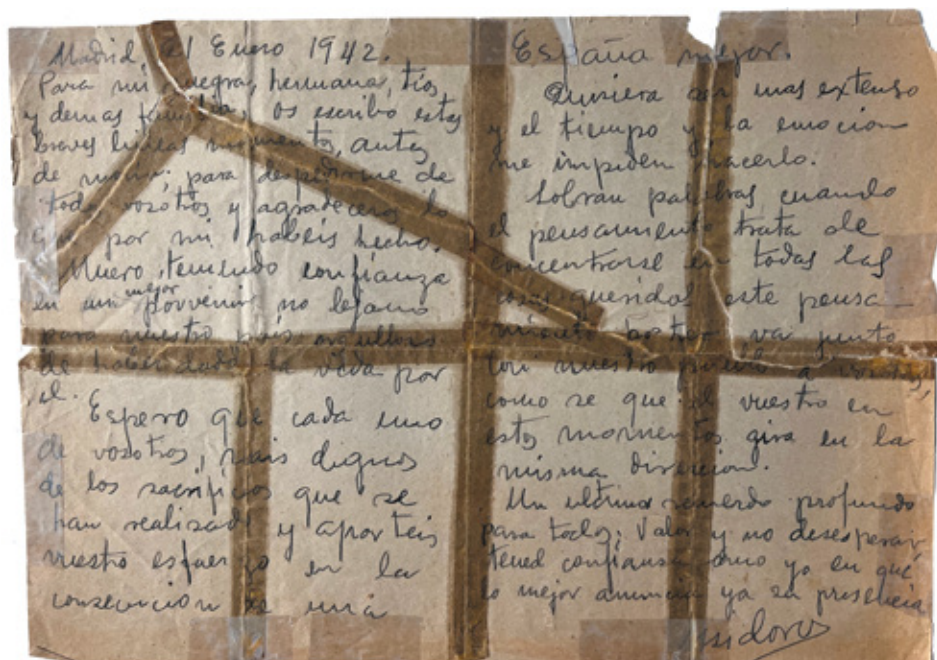 Madrid, 21 Enero 1942.
Para mi suegra, hermana, tios,
y demas familia, os escribo estas
breves lineas momentos, antes
de morir; para despedirme de
todos vosotros y agradeceros lo
que por mi habeis hecho.
Muero, teniendo confianza
en un mejor porvenir no lejano
para nuestro pais, orgulloso
de haber dado la vida por
el.
Espero que cada uno
de vosotros, seais dignos
de los sacrificios que se
han realizado y aporteis
vuestro esfuerzo en la
consecucion de una
España mejor.
Quisiera ser mas extenso
y el tiempo y la emocion
me impiden hacerlo.
Sobran palabras, cuando
el pensamiento trata de
concentrarse en todas las
cosas queridas, este pensa-
miento va junto
con nuestro a vosotros,
como se que el vuestro en
estos momentos gira en la
misma direccion.
Un ultimo recuerdo profundo
para todos; Valor y no desesperar
tened confianza como yo en que
lo mejor anuncia ya su presencia
Isidoro